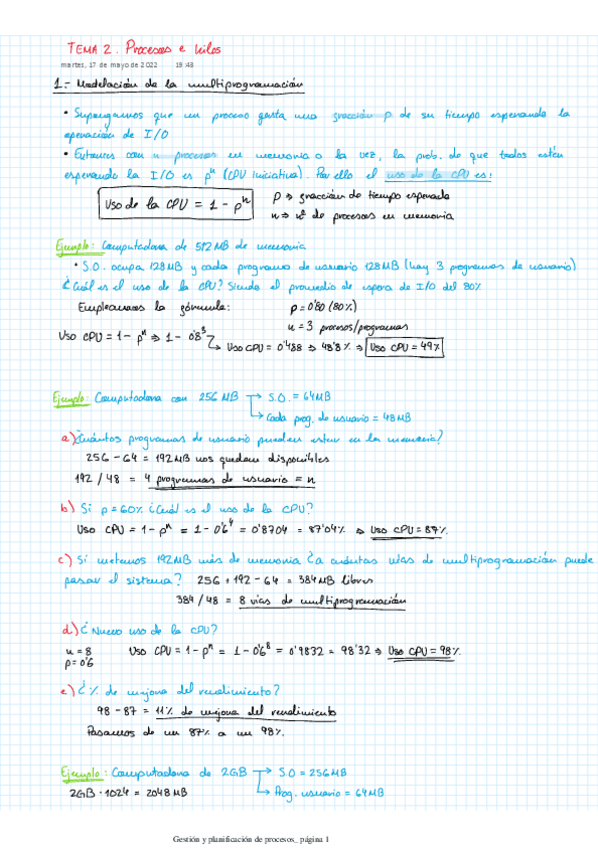 TEMA 2. Procesos e hilos
martes, 17 de mayo de 2022 19:43
1.- Modelación de la multiprogramación
• Supongamos que un proceso gasta una fracción p de su tiempo esperando la
operación de I/O
• Entonces con n procesos en memoria a la vez, la prob. de que todos estén
esperando la I/O es pⁿ (CPU inactiva). Por ello el uso de la CPU es:
Uso de la CPU = 1 - pⁿ
p → fracción de tiempo esperada
n → nº de procesos en memoria
Ejemplo: Computadora de 512 MB de memoria
• S.O. ocupa 128MB y cada programa de usuario 128MB (hay 3 programas de usuario)
¿Cuál es el uso de la CPU? Siendo el promedio de espera de I/O del 80%
Empleamos la fórmula: p = 0'80 (80%)
n = 3 procesos/programas
Uso CPU = 1 - pⁿ ⇒ 1 - 0'8³
↳ Uso CPU = 0'488 ⇒ 48'8% ⇒ Uso CPU = 49%
Ejemplo: Computadora con 256 MB → S.O. = 64MB
↳ Cada prog. de usuario = 48MB
a) ¿Cuántos programas de usuario pueden estar en la memoria?
256 - 64 = 192MB nos quedan disponibles
192 / 48 = 4 programas de usuario = n
b) Si p = 60% ¿Cuál es el uso de la CPU?
Uso CPU = 1 - pⁿ = 1 - 0'6⁴ = 0'8704 = 87'04% ⇒ Uso CPU = 87%.
c) Si metemos 192MB más de memoria ¿a cuántas vías de multiprogramación puede
pasar el sistema? 256 + 192 - 64 = 384MB libres
384 / 48 = 8 vías de multiprogramación
d) ¿Nuevo uso de la CPU?
n = 8 Uso CPU = 1 - pⁿ = 1 - 0'6⁸ = 0'9832 = 98'32 ⇒ Uso CPU = 98%
p = 0'6
e) ¿% de mejora del rendimiento?
98 - 87 = 11% de mejora del rendimiento
Pasamos de un 87% a un 98%.
Ejemplo: Computadora de 2GB → S.O = 256MB
2GB · 1024 = 2048 MB ↳ Prog. usuario = 64MB
Gestión y planificación de procesos_ página 1